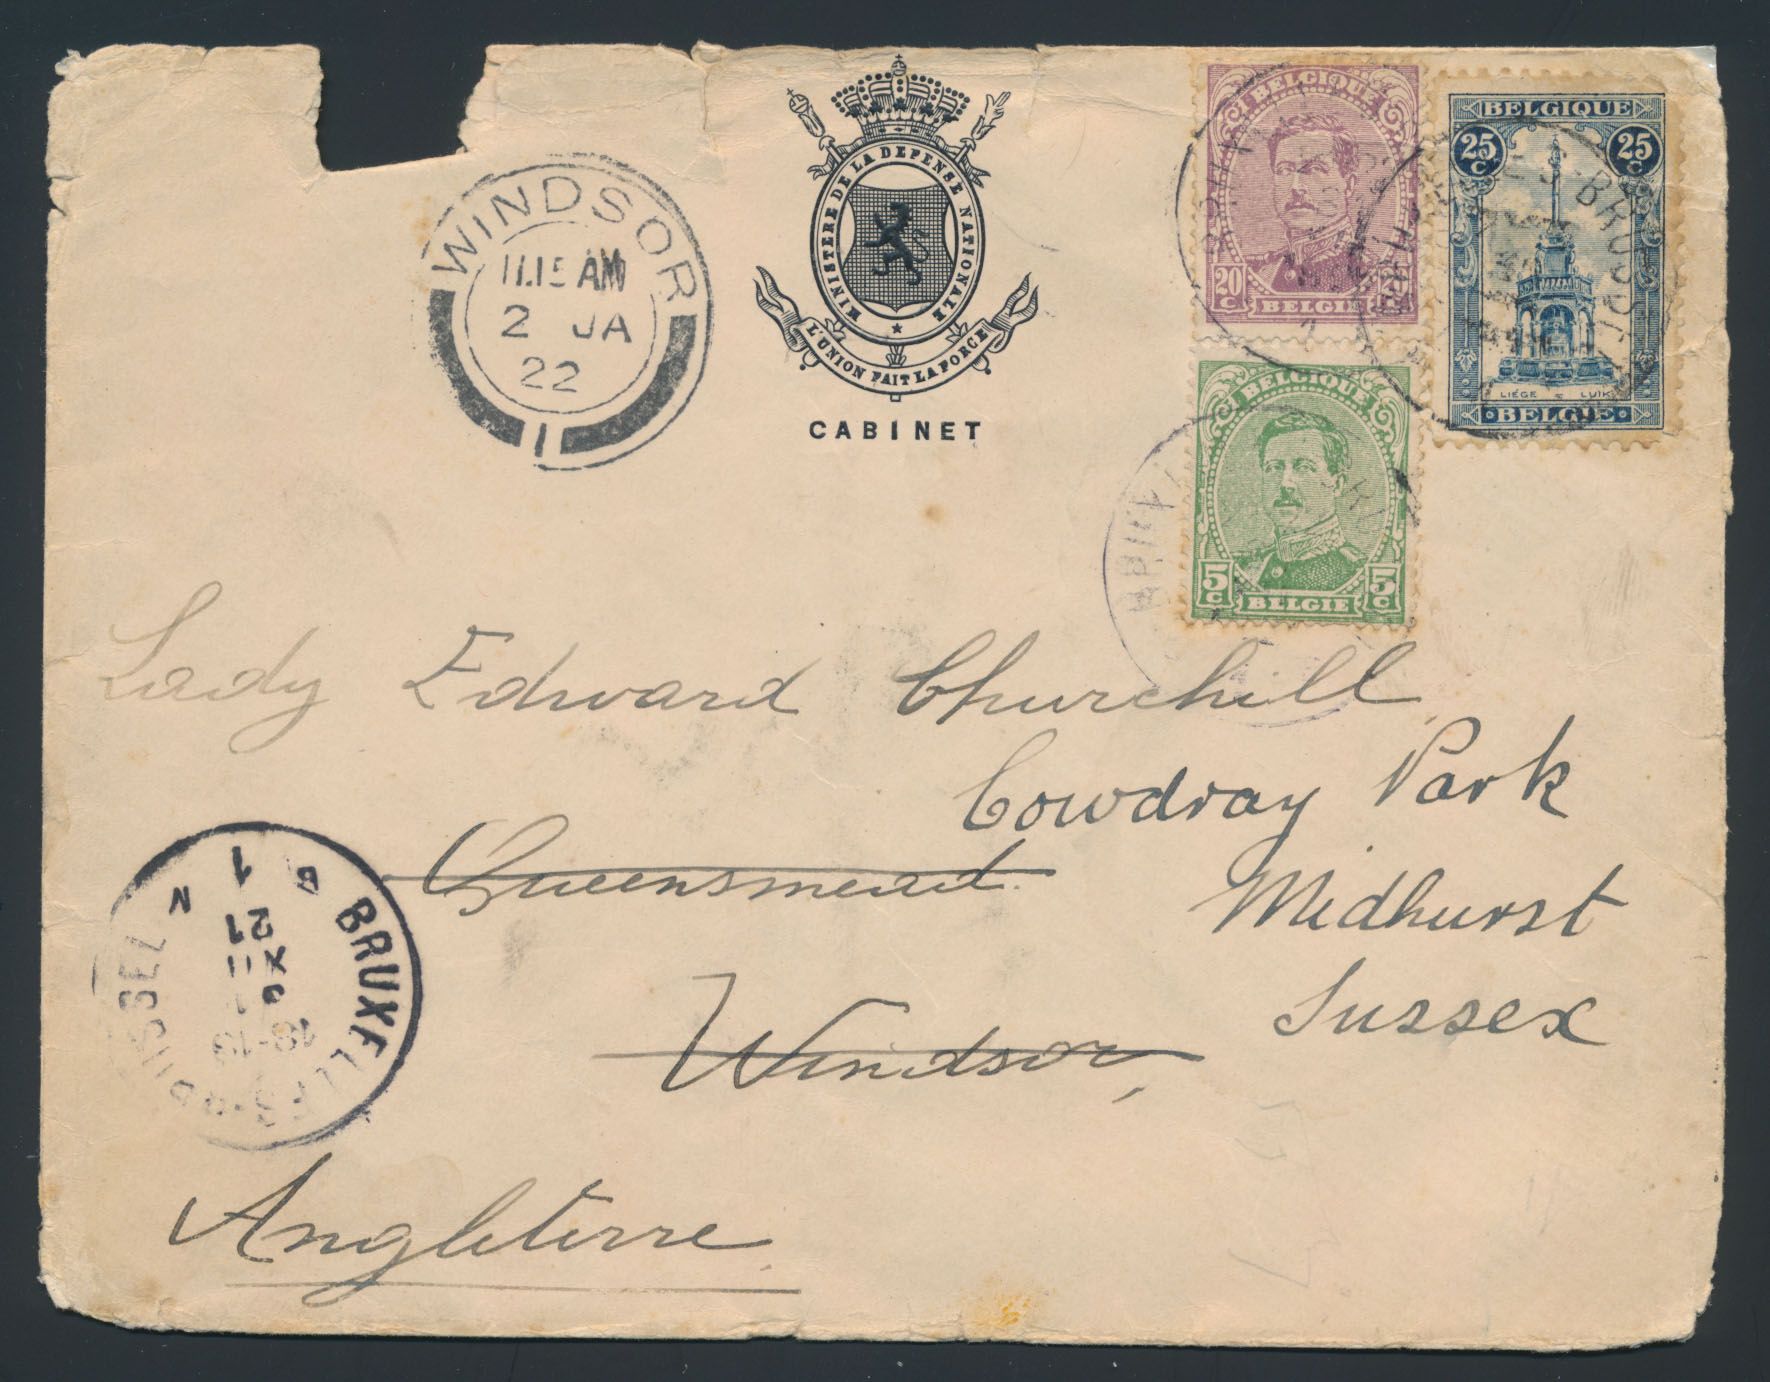 WINDSOR
11.15 AM
2 JA
22
1
MINISTERE DE LA DEFENSE NATIONALE
L'UNION FAIT LA FORCE
CABINET
BELGIQUE
20 C
BELGIE
BELGIQUE
25 C 25 C
LIÉGE LUIK
BELGIE
BELGIQUE
5 C 5 C
BELGIE
Lady Edward Churchill
Cowdray Park
Queensmead.
Midhurst
Windsor,
Sussex
BRUXELLES-BRUSSEL
N 1 B
21
XII
18-19
Angleterre.